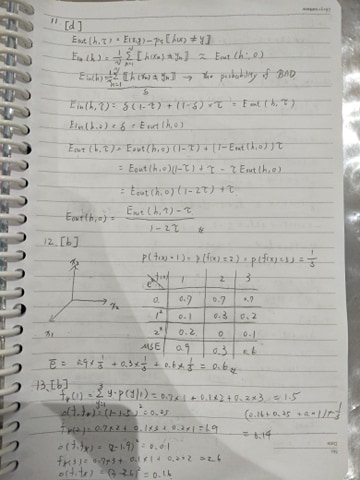 11 [d]
Eout(h,τ) = E(x,y)~P τ ⟦h(x) ≠ y⟧
Ein(h) = 1/N Σ n=1 N ⟦h(xn) ≠ yn⟧ ≈ Eout(h,0)
Ein(h) 1/N Σ n=1 N ⟦h(xn) ≠ yn⟧ → the probability of BAD
δ
Ein(h,τ) = δ(1-τ) + (1-δ)×τ = Eout(h,τ)
Ein(h,0) = δ = Eout(h,0)
Eout(h,τ) = Eout(h,0)(1-τ) + [1-Eout(h,0)]τ
= Eout(h,0)(1-τ) + τ - τEout(h,0)
= Eout(h,0)(1-2τ) + τ
Eout(h,0) = Eout(h,τ) - τ / 1-2τ
12. [b]
P(f(x)=1) = P(f(x)=2) = P(f(x)=3) = 1/3
f(x) 1 2 3
0 0.7 0.7 0.7
1² 0.1 0.3 0.2
2² 0.2 0 0.1
MSE 0.9 0.3 0.6
x2
x1
E = 0.9×1/3 + 0.3×1/3 + 0.6×1/3 = 0.6
13. [b]
f*(1) = Σ y=1 3 y·P(y|x) = 0.7×1 + 0.1×2 + 0.2×3 = 1.5
Δ(f,f*) = (1-1.5)² = 0.25
(0.16+0.25+0.01)×1/3
f*(2) = 0.7×2 + 0.1×3 + 0.2×1 = 1.9
= 0.14
Δ(f,f*) = (2-1.9)² = 0.01
f*(3) = 0.7×3 + 0.1×1 + 0.2×2 = 2.6
Δ(f,f*) = (3-2.6)² = 0.16